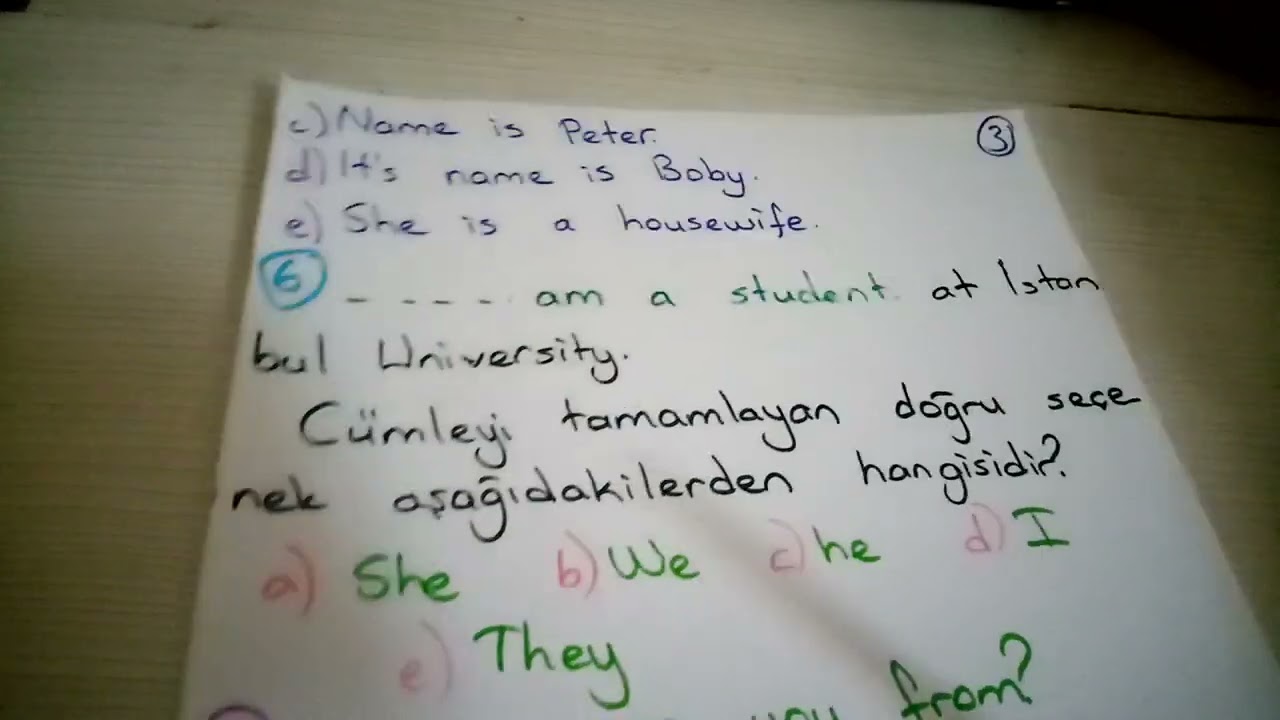 c) Name is Peter. ③
d) It's name is Boby.
e) She is a housewife.
⑥ - - - - am a student. at Istan
bul University.
Cümleyi tamamlayan doğru seçe
nek aşağıdakilerden hangisidir?
a) She b) We c) he d) I
e) They
you from?